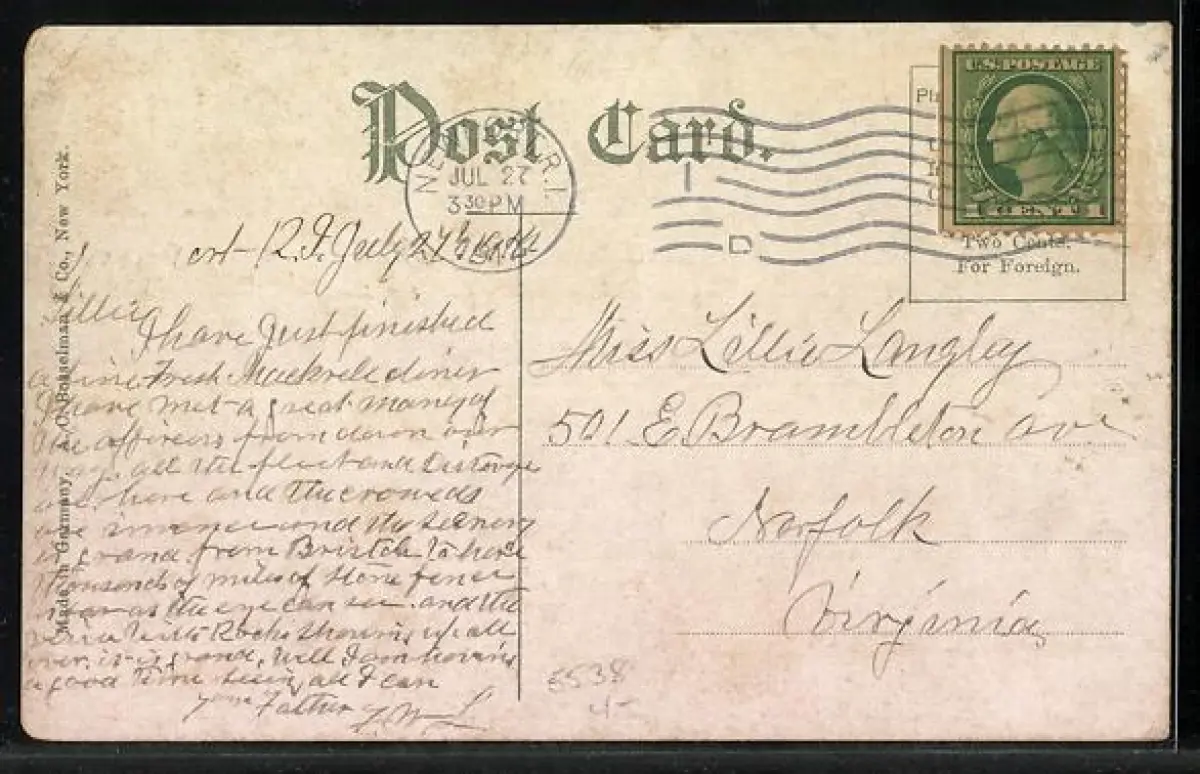 Post Card.
U.S. POSTAGE
JUL 27
3 30 PM
Two Cents.
For Foreign.
Made in Germany, A. C. Bosselman & Co., New York.
July 27
Lillie
I have Just finished
a fine Fresh Mackrele diner
I have met a great many of
the officers from down over
all the fleet and
are here and the crowds
are and the scenery
is grand from Bristol to here
thousands of miles of stone fence
as far as the eye can see and the
with Rocks showing up all
over, it is grand, well I am having
a good time seeing all I can
your Father L W L
Miss Lillie Langley
501 E Brambleton ave
Norfolk
Virginia
5538